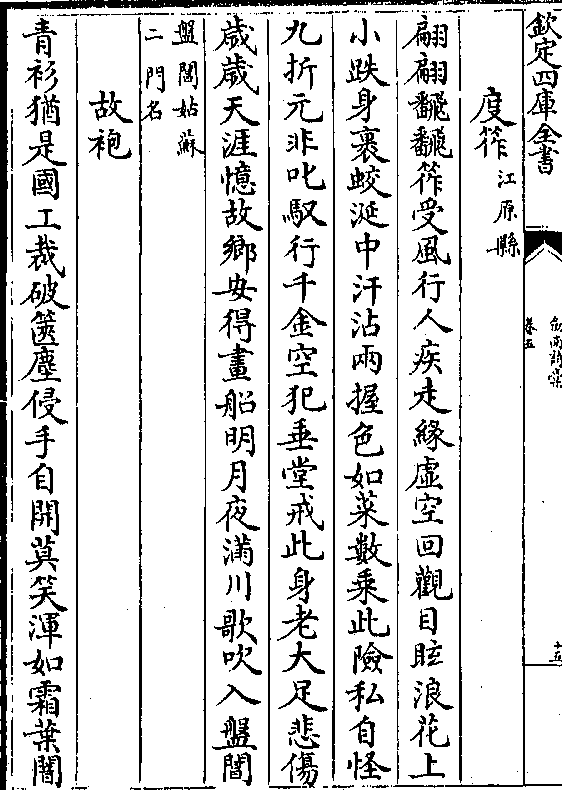 欽定四庫全書
劍南詩藁
卷五
十五
度筰江原縣
翩翩翻翻筰受風行人疾走緣虛空回觀目眩浪花上
小跌身裹蛟涎中汗沾兩握色如菜數乘此險私自怪
九折元非叱馭行千金空犯垂堂戒此身老大足悲傷
歲歲天涯憶故鄉安得畫船明月夜滿川歌吹入盤閶
盤閶姑蘇
二門名
故袍
青衫猶是國工裁破篋塵侵手自開莫笑渾如霜葉闇